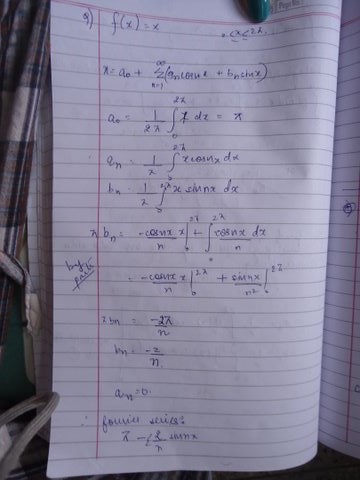 9) f(x) = x 0<x<2π.
x = a₀ + ∞Σn=1 (aₙcosnx + bₙsinnx)
a₀ = 1/2π ∫₀^2π x dx = π
aₙ = 1/π ∫₀^2π x cosnx dx
bₙ = 1/π ∫₀^2π x sinnx dx
π bₙ = -cosnx/n x |₀^2π + ∫₀^2π cosnx/n dx
by parts
= -cosnx/n x |₀^2π + sinnx/n² |₀^2π
πbₙ = -2π/n
bₙ = -2/n
aₙ = 0
∴ fourier series:
π - Σ 2/n sinnx